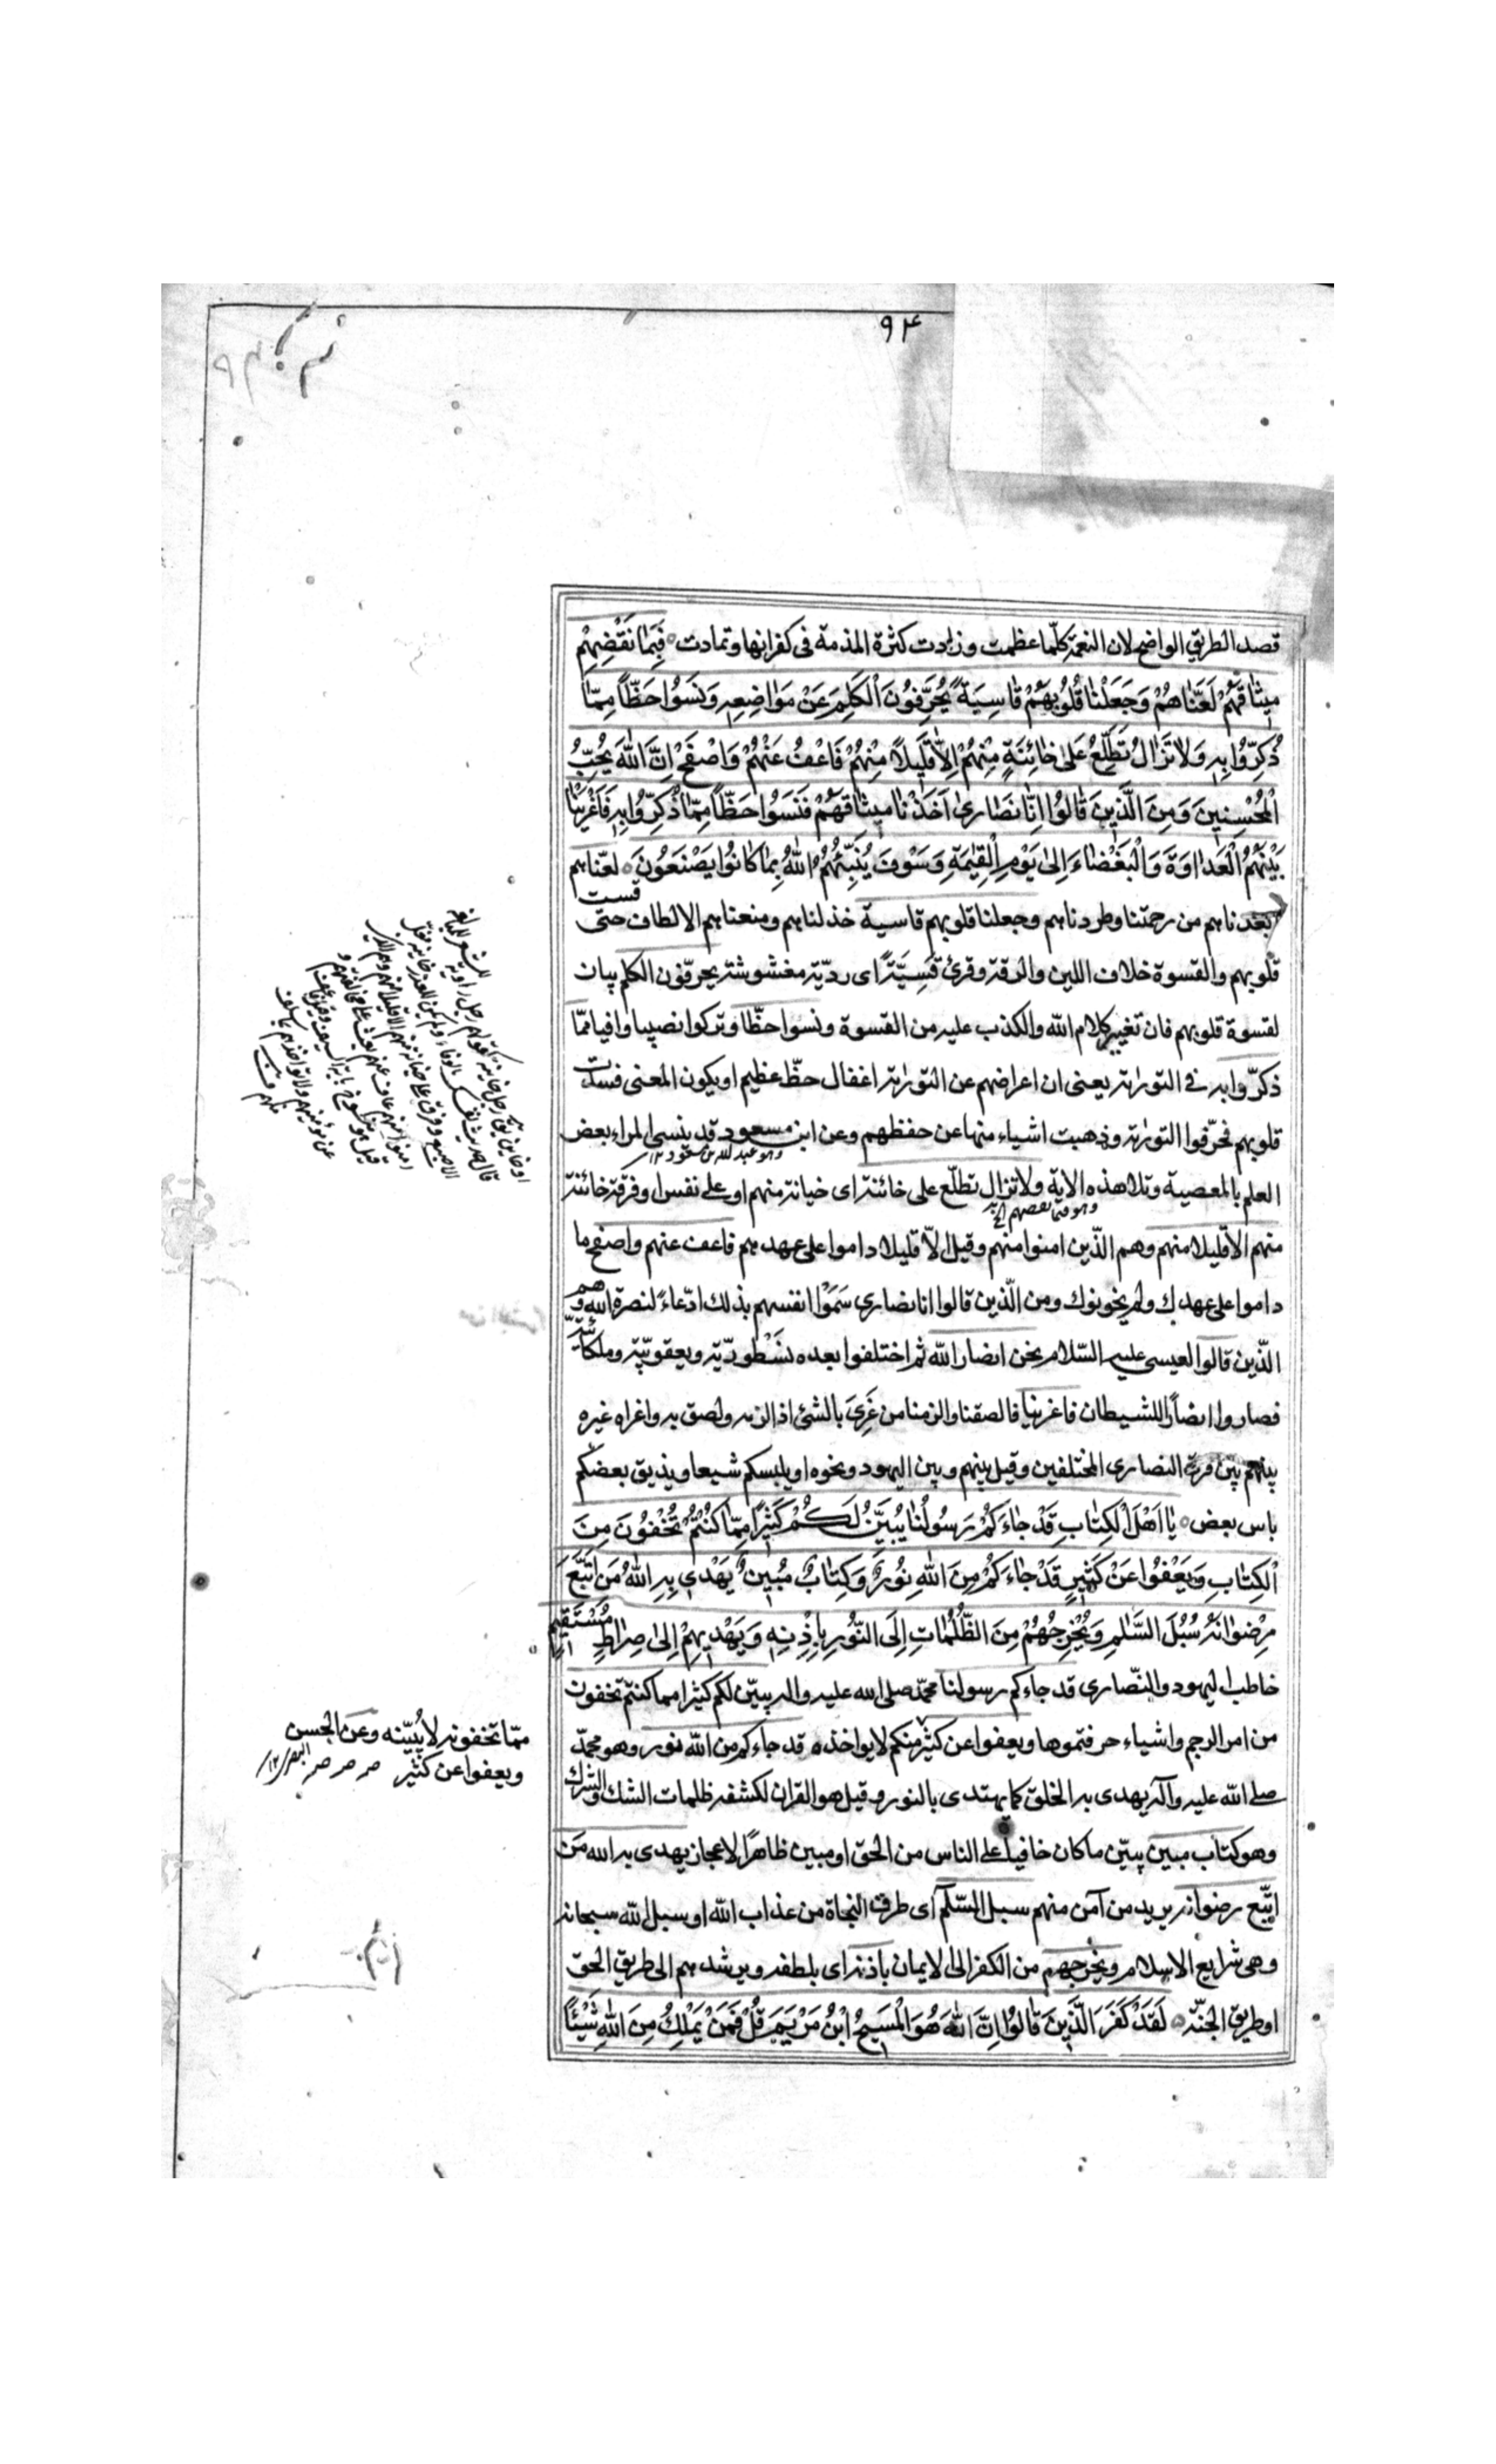 ۹۴
قصد الطريق الواضح لان النعمة كلّما عظمت وزادت كثرة المذمة فى كفرانها وتمادت ٥ فَبِمٰا نَقْضِهِمْ
مِيثٰاقَهُمْ لَعَنّٰاهُمْ وَجَعَلْنٰا قُلُوبَهُمْ قٰاسِيَةً يُحَرِّفُونَ الْكَلِمَ عَنْ مَوٰاضِعِهِ وَنَسُوا حَظّاً مِمّٰا
ذُكِّرُوا بِهِ وَلاٰ تَزٰالُ تَطَّلِعُ عَلىٰ خٰائِنَةٍ مِنْهُمْ اِلاّٰ قَلِيلاً مِنْهُمْ فَاعْفُ عَنْهُمْ وَاصْفَحْ اِنَّ اللّٰهَ يُحِبُّ
الْمُحْسِنِينَ وَمِنَ الَّذِينَ قٰالُوا اِنّٰا نَصٰارىٰ اَخَذْنٰا مِيثٰاقَهُمْ فَنَسُوا حَظّاً مِمّٰا ذُكِّرُوا بِهِ فَاَغْرَيْنٰا
بَيْنَهُمُ الْعَدٰاوَةَ وَالْبَغْضٰاءَ اِلىٰ يَوْمِ الْقِيٰمَةِ وَسَوْفَ يُنَبِّئُهُمُ اللّٰهُ بِمٰا كٰانُوا يَصْنَعُونَ ٥ لعنّاهم
بعّدناهم من رحمتنا وطردناهم وجعلنا قلوبهم قاسية خذلناهم ومنعناهم الالطاف حتى قست
قلوبهم والقسوة خلاف اللين والرقة وقرئ قَسِيَّةً اى رديّة مغشوشة يحرّفون الكلم بيان
لقسوة قلوبهم فان تغيير كلام الله والكذب عليه من القسوة ونسوا حظّا وتركوا نصيبا وافيا ممّا
ذكّروا به فى التورٰية يعنى ان اعراضهم عن التورٰية اغفال حظّ عظيم او يكون المعنى فسدت
قلوبهم فحرّفوا التورٰية وذهبت اشياء منها عن حفظهم وعن ابن مسعود قد ينسى المرء بعض
وهو عبد الله بن مسعود ١٢
العلم بالمعصية وتلا هذه الاية ولا تزال تطلّع على خائنة اى خيانة منهم او على نفس او فرقة خائنة
وهو فبما نقضهم الخ
منهم الا قليلا منهم وهم الّذين امنوا منهم وقيل الاّ قليلا داموا على عهدهم فاعف عنهم واصفح ما
داموا على عهدك ولم يخونوك ومن الّذين قالوا انا نصارى سَمَوْا انفسهم بذلك ادّعاءً لنصرة الله وهم
الّذين قالوا لعيسى عليه السّلام نحن انصار الله ثم اختلفوا بعده نَسْطوريّة ويعقوبيّة وملكائيّة
فصاروا انصاراً للشيطان فاغرينا فالصقنا والزمنا من غَرِىَ بالشئ اذا لزمه ولصق به واغراه غيره
بينهم بين فرق النصارى المختلفين وقيل بينهم وبين اليهود ونحوه او يلبسكم شيعا ويذيق بعضكم
باس بعض ٥ يٰا اَهْلَ الْكِتٰابِ قَدْ جٰاءَكُمْ رَسُولُنٰا يُبَيِّنُ لَكُمْ كَثِيرًا مِمّٰا كُنْتُمْ تُخْفُونَ مِنَ
الْكِتٰابِ وَيَعْفُوا عَنْ كَثِيرٍ قَدْ جٰاءَكُمْ مِنَ اللّٰهِ نُورٌ وَكِتٰابٌ مُبِينٌ يَهْدِى بِهِ اللّٰهُ مَنِ اتَّبَعَ
رِضْوٰانَهُ سُبُلَ السَّلٰمِ وَيُخْرِجُهُمْ مِنَ الظُّلُمٰاتِ اِلَى النُّورِ بِاِذْنِهِ وَيَهْدِيهِمْ اِلىٰ صِرٰاطٍ مُسْتَقِيمٍ
خاطب اليهود والنّصارى قد جاءكم رسولنا محمّد صلى الله عليه واله يبيّن لكم كثيرا مما كنتم تخفون
من امر الرجم واشياء حرفتموها ويعفوا عن كثير منكم لا يواخذه قد جاءكم من الله نور وهو محمّد
صلى الله عليه وآله يهدى به الخلق كما يهتدى بالنور وقيل هو القران لكشفه ظلمات الشك والشرك
وهو كتاب مبين يبيّن ما كان خافيا على الناس من الحق او مبين ظاهرًا لاعجاز يهدى به الله مَن
اتّبع رضوانه يريد من آمن منهم سبل السّلم اى طرق النجاة من عذاب الله او سبل الله سبحانه
وهى شرايع الاسلام ويخرجهم من الكفر الى الايمان باذنه اى بلطفه ويرشدهم الى طريق الحق
او طريق الجنّة ٥ لَقَدْ كَفَرَ الَّذِينَ قٰالُوا اِنَّ اللّٰهَ هُوَ الْمَسِيحُ ابْنُ مَرْيَمَ قُلْ فَمَنْ يَمْلِكُ مِنَ اللّٰهِ شَيْئًا
ممّا تخفونه لا يُبيّنه وعن الحسن
ويعفوا عن كثير